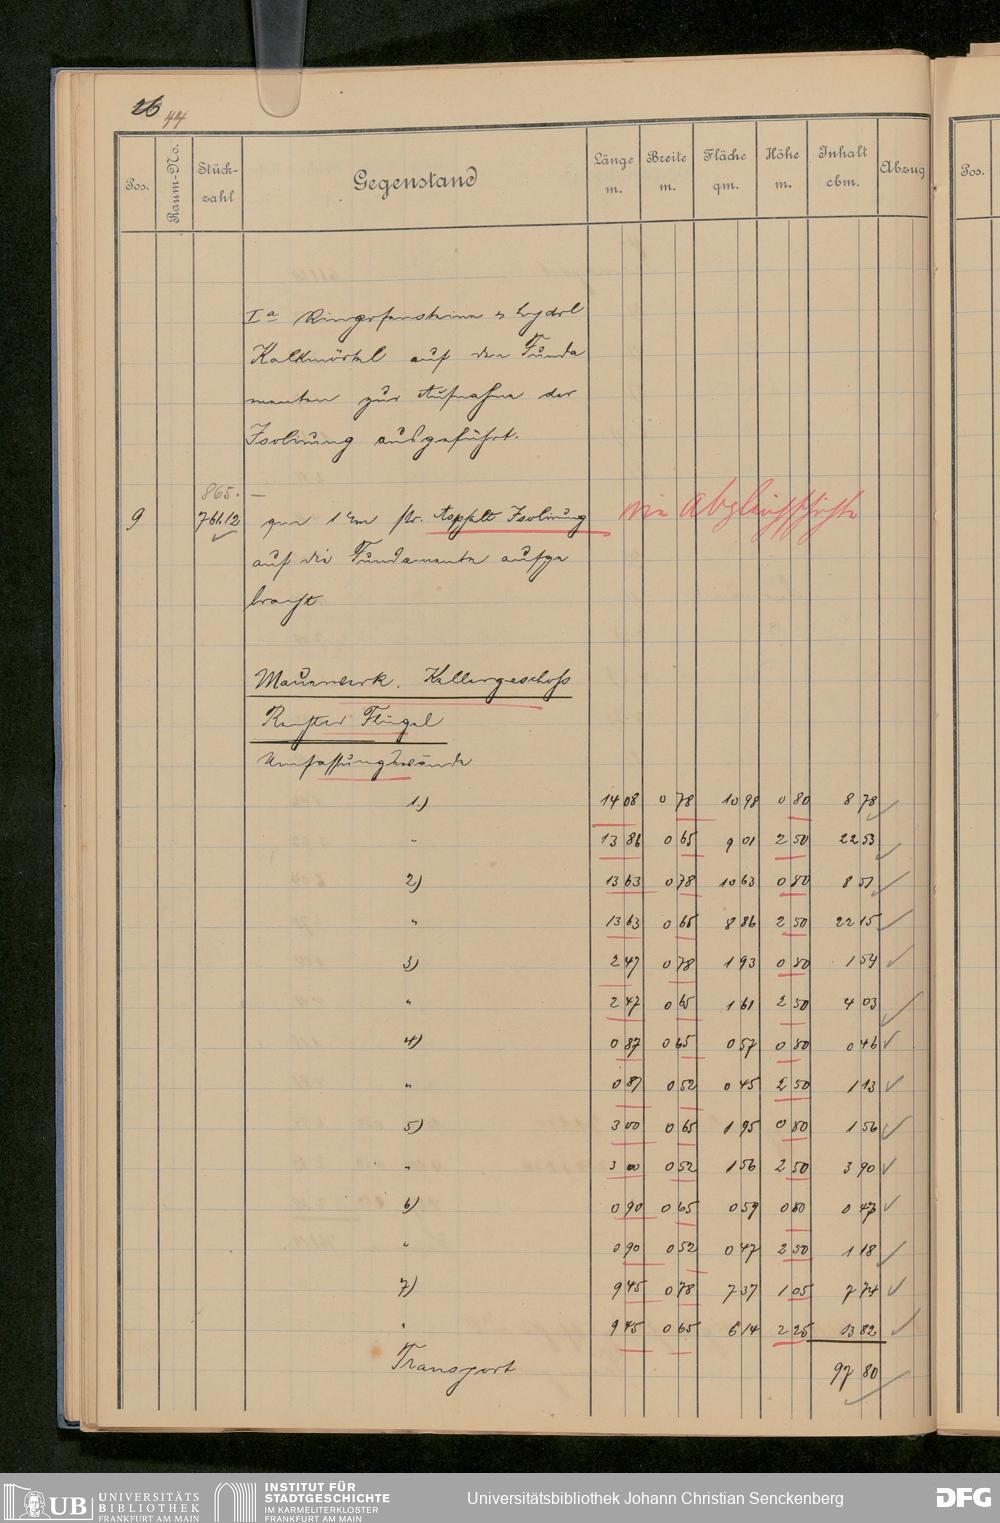 26 44
Pos. Raum-No. Stück-zahl Gegenstand Länge m. Breite m. Fläche qm. Höhe m. Inhalt cbm. Abzug Pos.
Ia Ringofensteine & hydrl
Kalkmörtel auf den Funda
menten zur Aufnahme der
Isolirung ausgeführt.
865. —
9 761.12 qm 1 cm str. Asphalt Isolirung wie Abgleichschichte
auf die Fundamente aufge
bracht
Mauerwerk. Kellergeschoss
Rechter Flügel
Umfassungswände
1.) 14 08 0 78 10 98 0 80 8 78
" 13 86 0 65 9 01 2 50 22 53
2) 13 63 0 78 10 63 0 80 8 51
" 13 63 0 65 8 86 2 50 22 15
3) 2 47 0 78 1 93 0 80 1 54
" 2 47 0 65 1 61 2 50 4 03
4) 0 87 0 65 0 57 0 80 0 46
" 0 87 0 52 0 45 2 50 1 13
5) 3 00 0 65 1 95 0 80 1 56
" 3 00 0 52 1 56 2 50 3 90
6) 0 90 0 65 0 59 0 80 0 47
" 0 90 0 52 0 47 2 50 1 18
7) 9 45 0 78 7 37 1 05 7 74
" 9 45 0 65 6 14 2 25 13 82
Transport 97 80
UB UNIVERSITÄTS
BIBLIOTHEK
FRANKFURT AM MAIN
INSTITUT FÜR
STADTGESCHICHTE
IM KARMELITERKLOSTER
FRANKFURT AM MAIN
Universitätsbibliothek Johann Christian Senckenberg
DFG